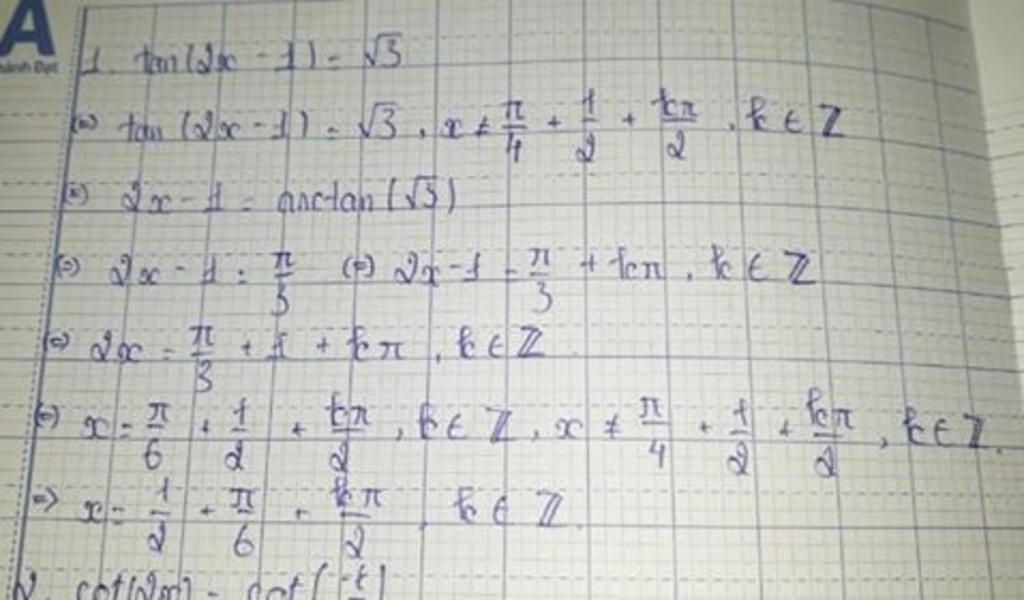 A
1. tan(2x - 1) = √3
(=) tan(2x - 1) = √3, x ≠ π/4 + 1/2 + kπ/2, k ∈ ℤ
(=) 2x - 1 = arctan(√3)
(=) 2x - 1 = π/3 (=) 2x - 1 = π/3 + kπ, k ∈ ℤ
(=) 2x = π/3 + 1 + kπ, k ∈ ℤ
(=) x = π/6 + 1/2 + kπ/2, k ∈ ℤ, x ≠ π/4 + 1/2 + kπ/2, k ∈ ℤ.
=) x = 1/2 + π/6 + kπ/2, k ∈ ℤ.
2. cot(2x) =